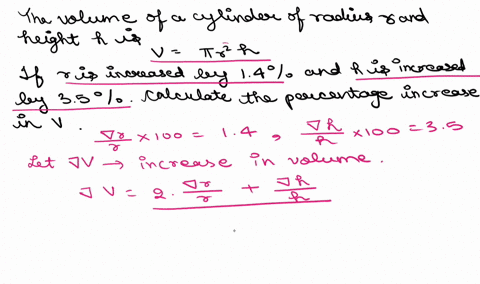 The volume of a cylinder of radius r and
height h is
V = πr² h
If r is increased by 1.4% and h is increased
by 3.5%. Calculate the percentage increase
in V.
∇r/r × 100 = 1.4 , ∇h/h × 100 = 3.5
Let ∇V → increase in volume.
∇V = 2. ∇r/r + ∇h/h